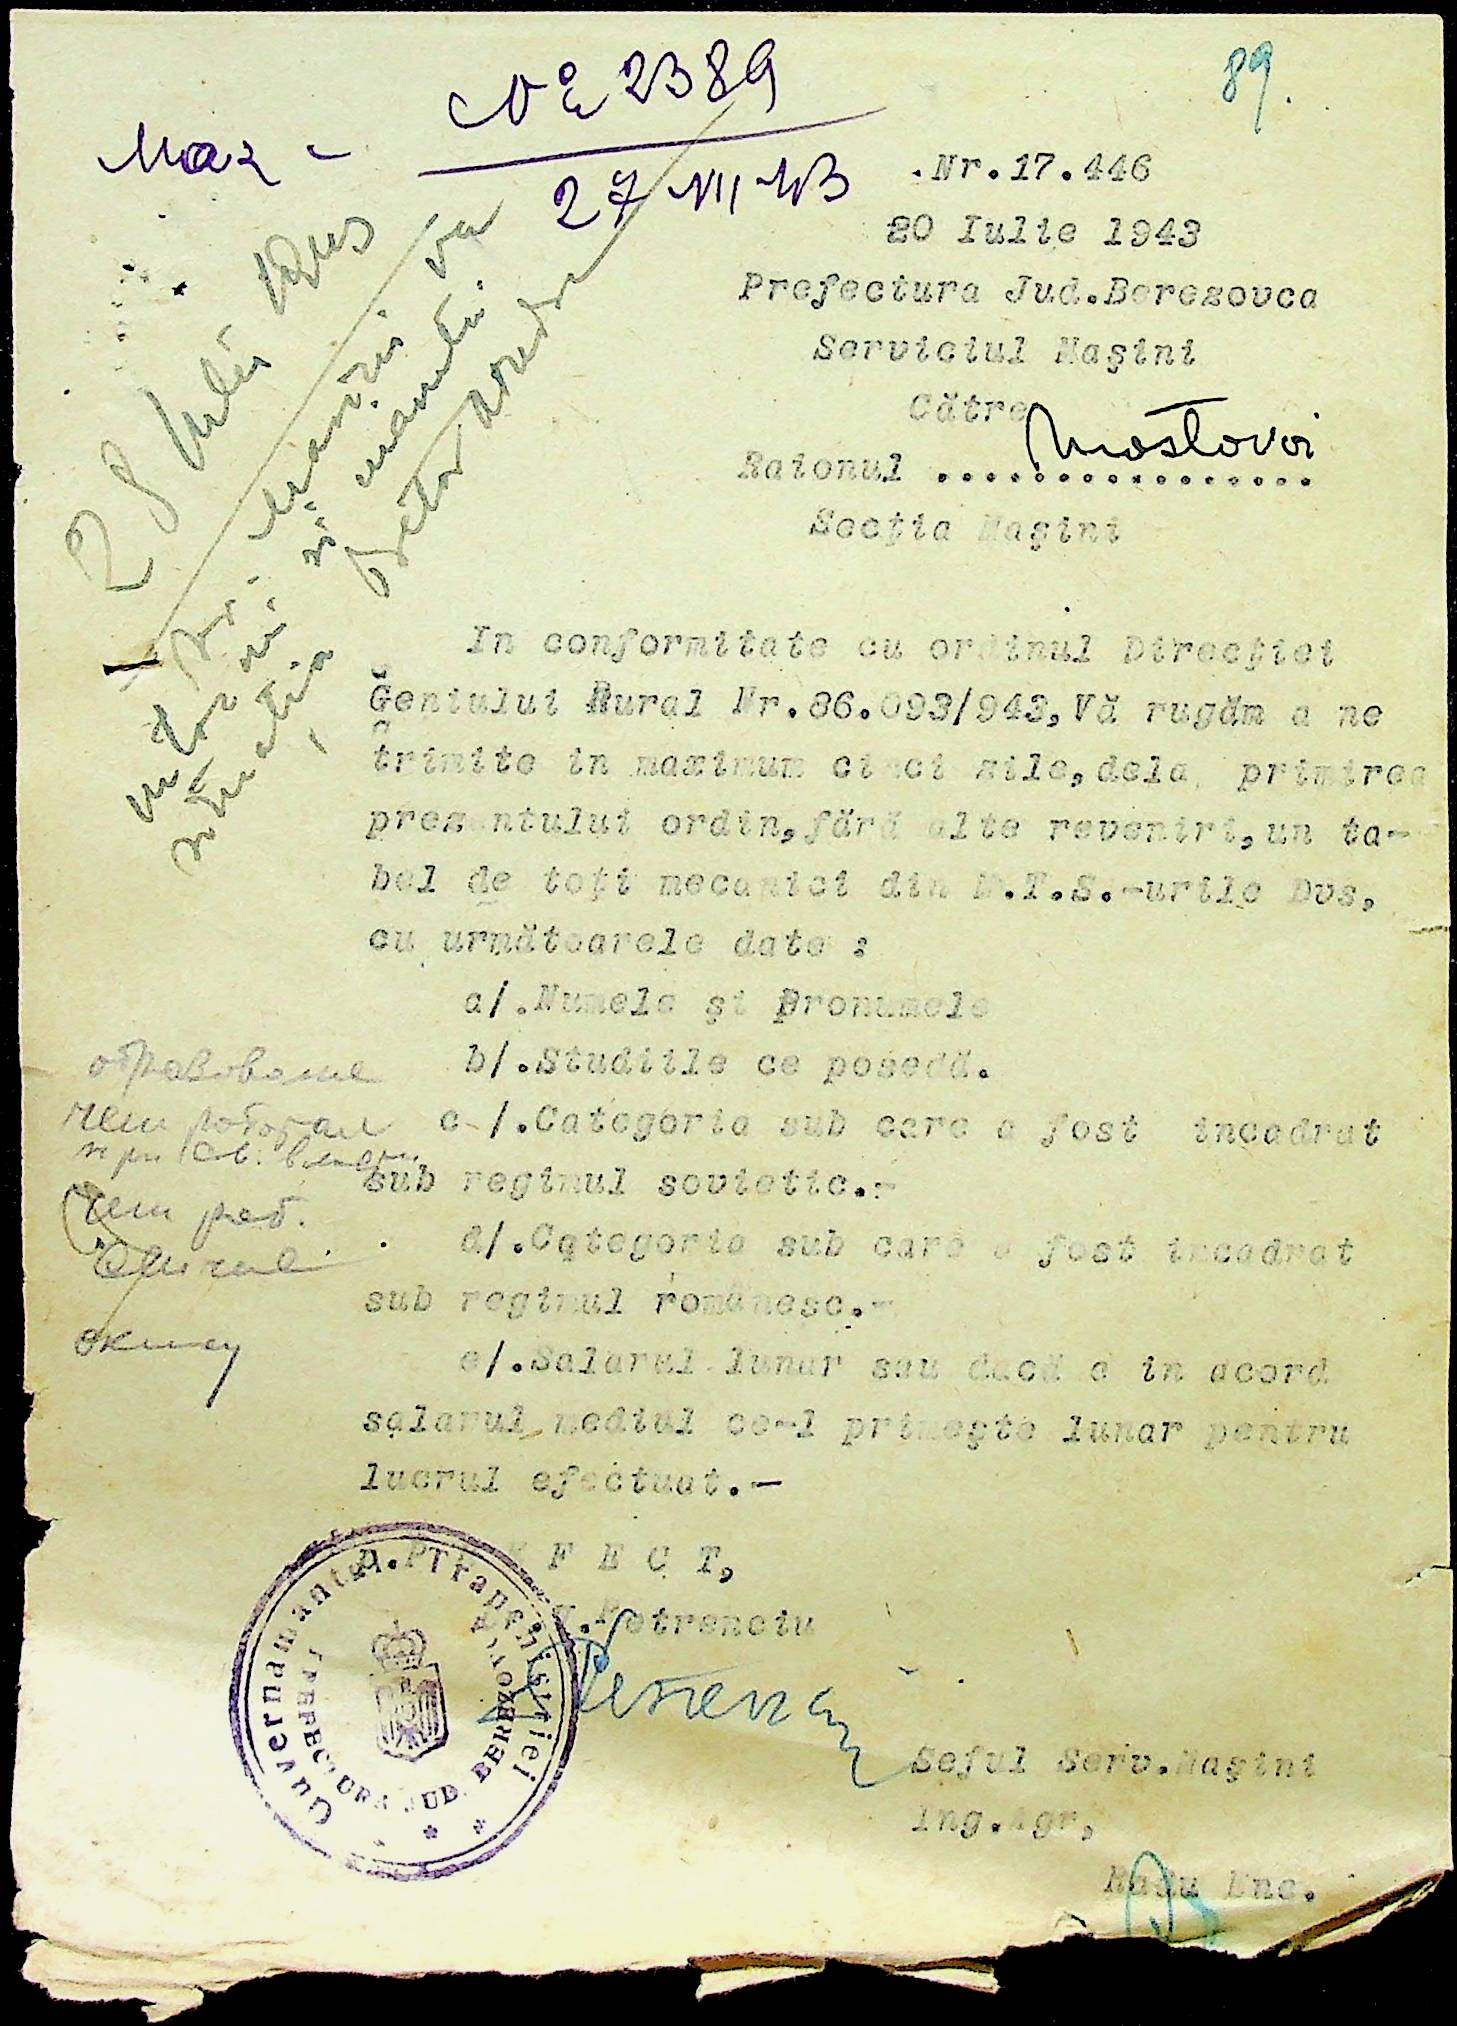 89.
№ 2389
27 VII 43
.Nr.17.446
20 Iulie 1943
Prefectura Jud.Berezovca
Serviciul Maşini
Către
Raionul Mostovoi
Secţia Maşini
28 Iulie
In conformitate cu ordinul Direcţiei
Geniului Rural Nr.86.093/943,Vă rugăm a ne
trimite in maximum cinci zile,dela primirea
prezentului ordin,fără alte reveniri,un ta-
bel de toţi mecanici din M.T.S.-urile Dvs,
cu următoarele date :
a/.Numele şi Pronumele
b/.Studiile ce posedă.
c-/.Categoria sub care a fost incadrat
sub reginul sovietic.-
d/.Categoria sub care a fost incadrat
sub reginul românesc.-
e/.Salarul lunar sau dacă e in acord
salarul mediul ce-l primeşte lunar pentru
lucrul efectuat.-
образование
чем работал
при Сов. власти
чем раб.
p.P R E F E C T,
Petrenciu
Guvernamantul Transnistriei
PREFECTURA JUD. BEREZOVCA
Seful Serv.Maşini
Ing.Agr,
Radu Enc.